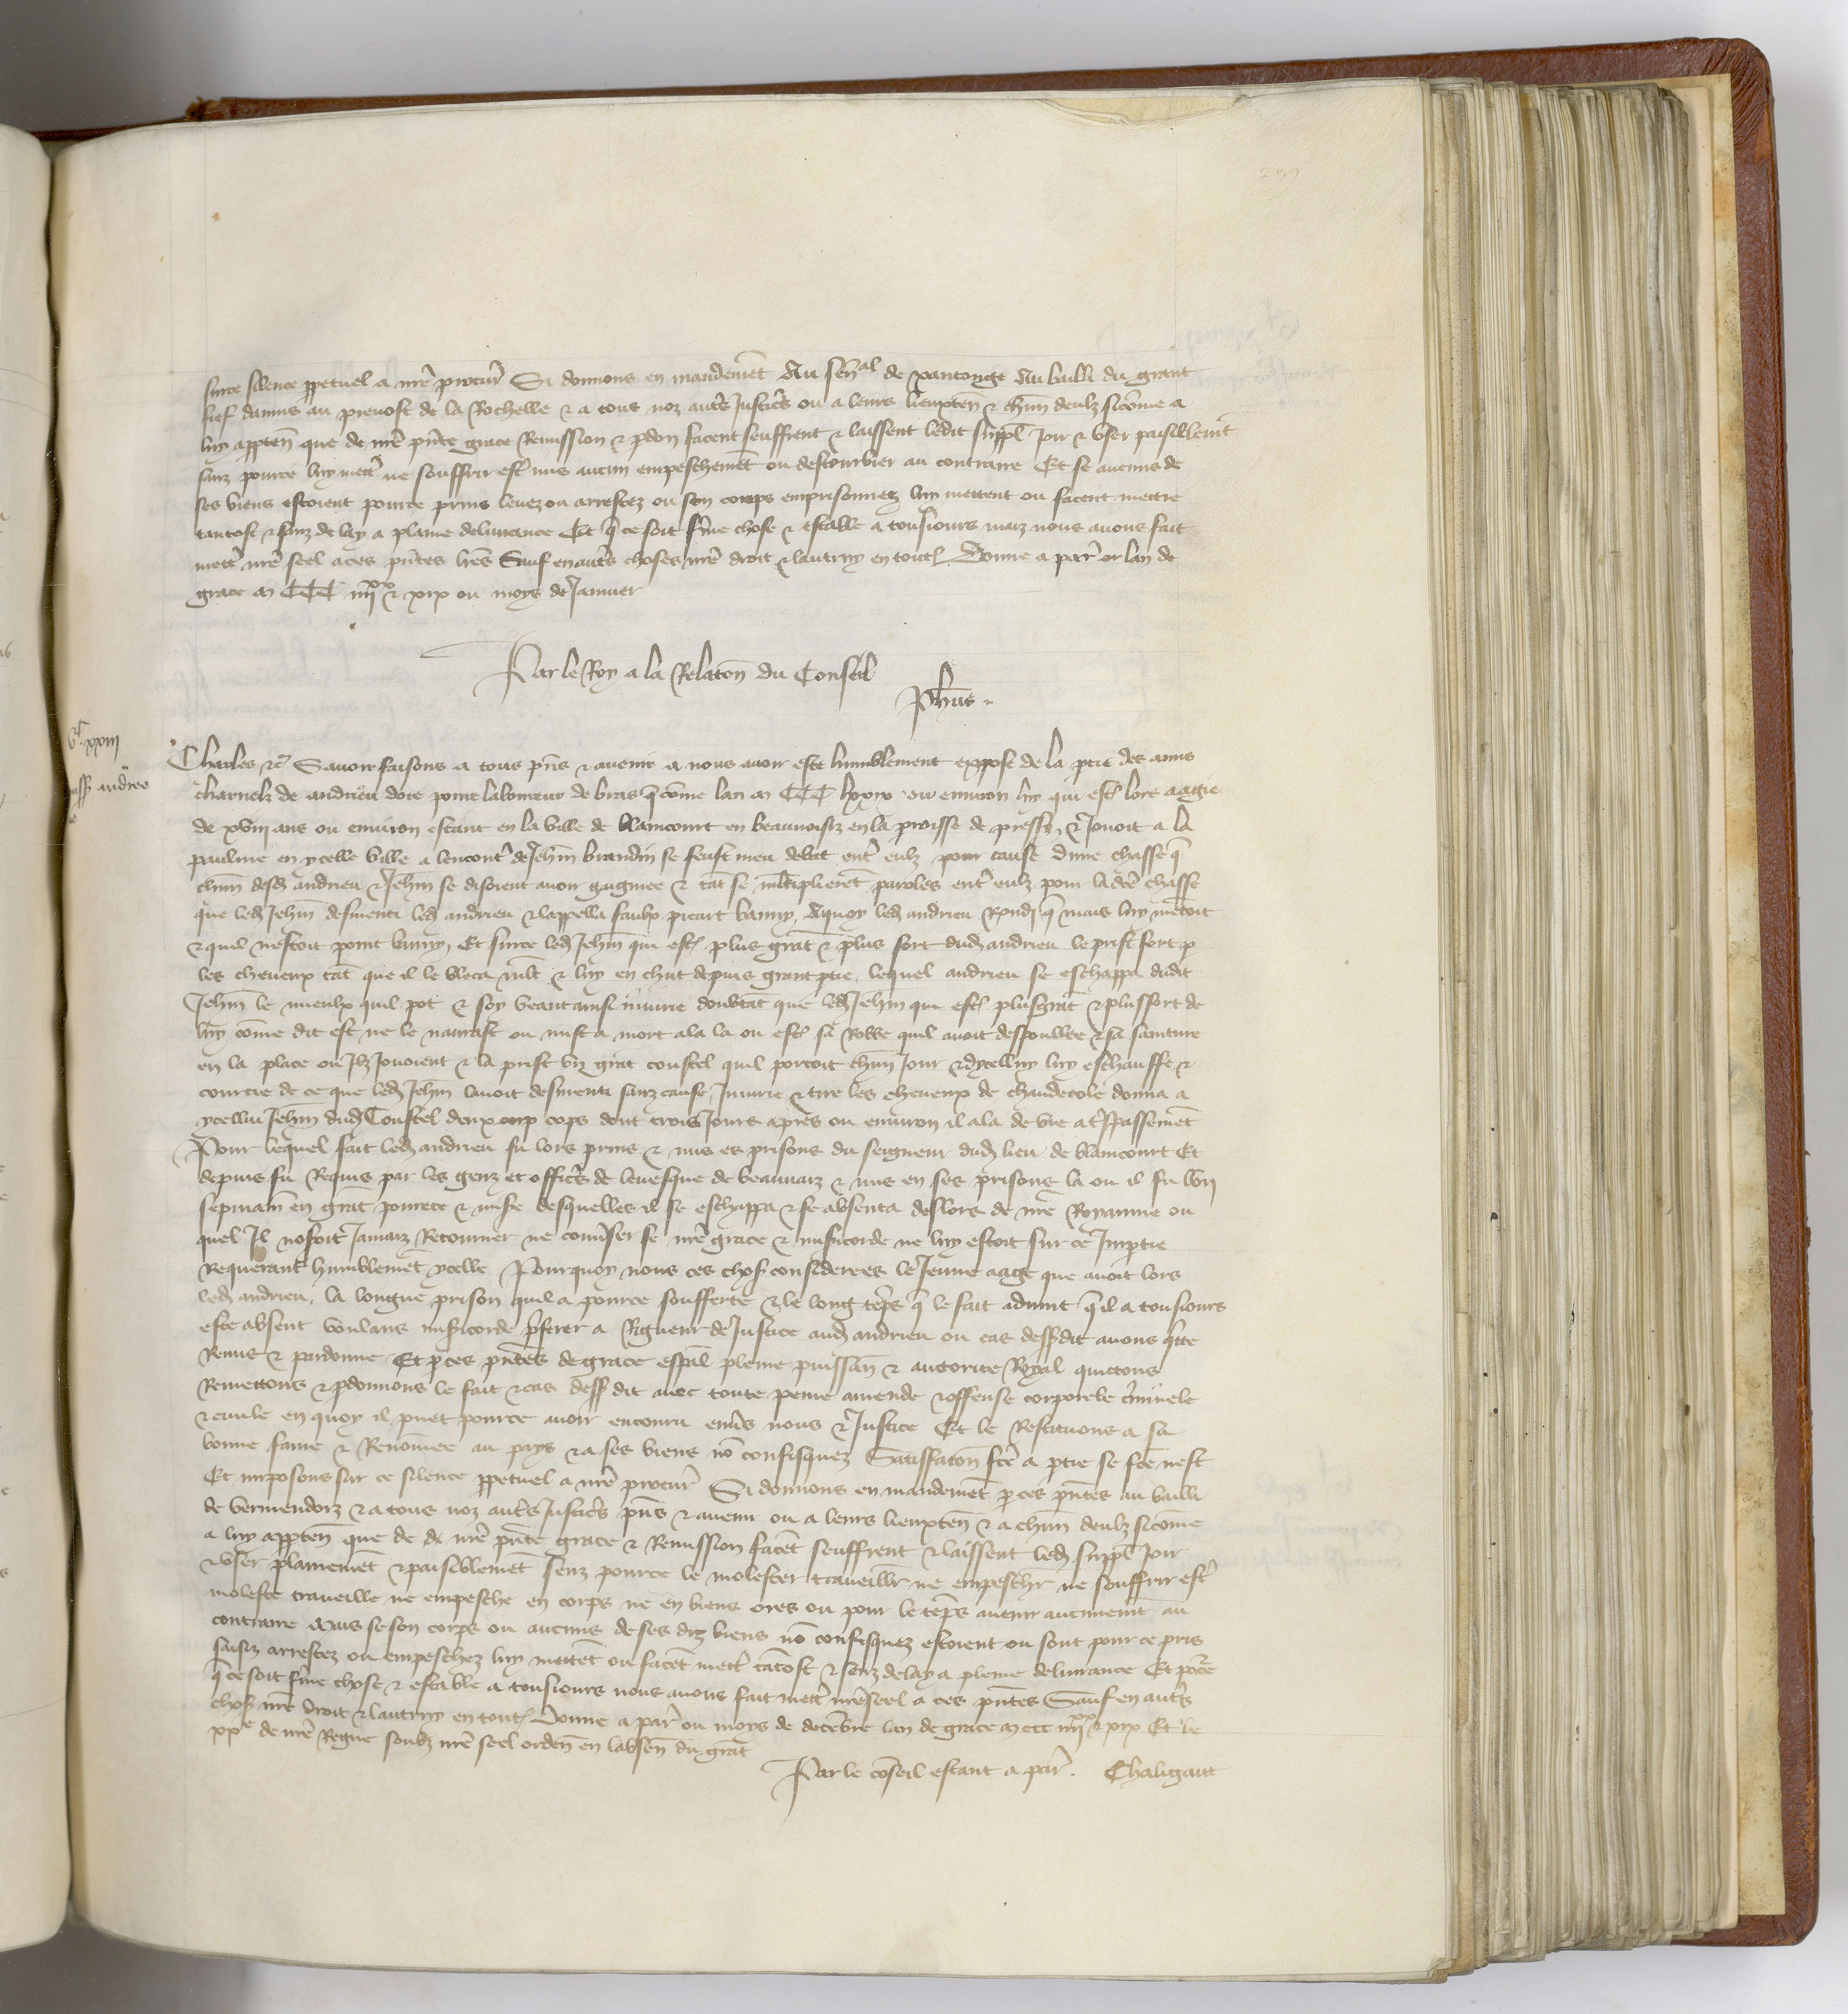 surce silence ppetuel a nre procur Si donnons en mandemet Au senal de xantonge Au bailli du grant
fief daunis au prevost de la Rochelle & a tous noz autes Justices ou a leurs lieuxten & chun deulz sicome a
luy appten que de nre pnte grace Remission & pdon facent seuffrent & laissent ledit suppl Joir & user paisiblemt
sanz pource luy mett ne souffrir est mis aucun empeschemet ou destourbier au contraire Et se aucuns de
ses biens estoient pource prins levez ou arrestez ou son corps emprisonnez luy mettent ou facent mettre
tantost & sanz delay a plaine delivrance Et q ce soit ferme chose & estable a tousiours maiz nous avons fait
mett nre seel a ces pntes lres Sauf en autes choses nre droit & lautruy en toutes Donne a paris or lan de
grace m CCC iiii xx & xix ou moys de Janvier
Par le Roy a la Relaton du Conseil
Phus
Charles &c Savoir faisons a tous pns & avenir a nous avoir este humblement expose de la ptie des amis
charnelz de andrieu dore povre laboureur de bras q come lan m CCC lxxix ou environ luy qui est lors aagie
de xviii ans ou environ estant en la ville de blaincourt en beauvoisiz en la proisse de pressy & Jouoit a la
paulme en ycelle ville a lencont de Jehan brandin se feust meu debat ent eulz pour cause dune chasse q
chun desd andrieu & Jehan se disoient avoir gagnee & tat se multiplieret paroles ent eulz pour ladce chasse
que led Jehan desmenti led andrieu & lappella faulx picart banny Aquoy led andrieu Rondi q mais luy metoit
& quil nestoit point banny Et surce led Jehan qui est plus grat & plus fort dud andrieu le prist fort p
les cheveux tat que il le bleca mlt & luy en chut depuis grant ptie lequel andrieu se eschappa dudit
Jehan le mieulx quil pot & soy veant ainsi iniurie doubtat que led Jehan qui est plus grat & plus fort de
luy come dit est ne le navrast ou mist a mort ala la ou est sa Robe quil avoit despoullee & sa sainture
en la place ou Ilz Jouoient & la prist un grat coustel quil portoit chun Jour & dycelluy luy eschauffe &
courcie de ce que led Jehan lavoit desmenti sanz cause Iniurie & tire les cheveux de chaudecole donna a
ycellui Jehan dud Coustel deux cops dont trois Jours apres ou environ il ala de vie a trespassemet
Pour lequel fait led andrieu fu lors prins & mis es prisons du seigneur dud lieu de blaincourt Et
depuis fu Requis par les genz et offices de levesque de beauvaiz & mis en ses prisons la ou il fu lvii
sepmain en grat povrete & mise desquelles il se eschappa & se absenta deslors de nre Royaume ou
quel Il nosoit Jamaiz Retourner ne conuser se nre grace & misicorde ne luy estoit sur ce Imptie
Requerant humblemet ycelle Pourquoy nous ces chos considerees le Jeune aage que avoit lors
led andrieu la longue prison quil a pource soufferte & le long teps q le fait advint q il a tousiours
este absent voulans misicorde pferer a Rigueur de Justice aud andrieu ou cas dessdit avons qtte
Remis & pardonne Et p ces pntes de grace espal pleine puissan & autorite Royal quittons
Remettons & pdonnons le fait & cas dess dit avec toute peine amende & offense corporele criminele
& civile en quoy il puet pource avoir encouru envs nous & Justice Et le Restituons a sa
bonne fame & Renomee au pays & a ses biens no confisquez Satisfaton fce a ptie se fce nest
Et imposons sur ce silence ppetuel a nre procur Si donnons en mandemet p ces pntes au bailli
de vermendoiz & a tous noz autes Justices pns & avenir ou a leurs lieuxten & a chun deulz sicome
a luy apptien que de de nre pnte grace & Remission facet seuffrent & laissent led suppl Joir
& user plainemet & paisiblemet senz pource le molester traveillir ne empeschir ne souffrir est
moleste traveille ne empesche en corps ne en biens ores ou pour le teps avenir aucunemt au
contraire Mais se son corps ou aucuns de ses diz biens no confisquez estoient ou sont pour ce pris
saisiz arrestez ou empeschez luy mettet ou facet mett tatost & senz delay a pleine delivrance Et pce
q ce soit ferme chose & estable a tousiours nous avons fait mett nre seel a ces pntes Sauf en autes
chos nre droit & lautruy en toutes Donne a paris ou moys de decebre lan de grace m ccc iiii xx & xix Et le
xxe de nre Regne soubz nre seel orden en labsen du grat
Par le coseil estant a paris. Chaligaut